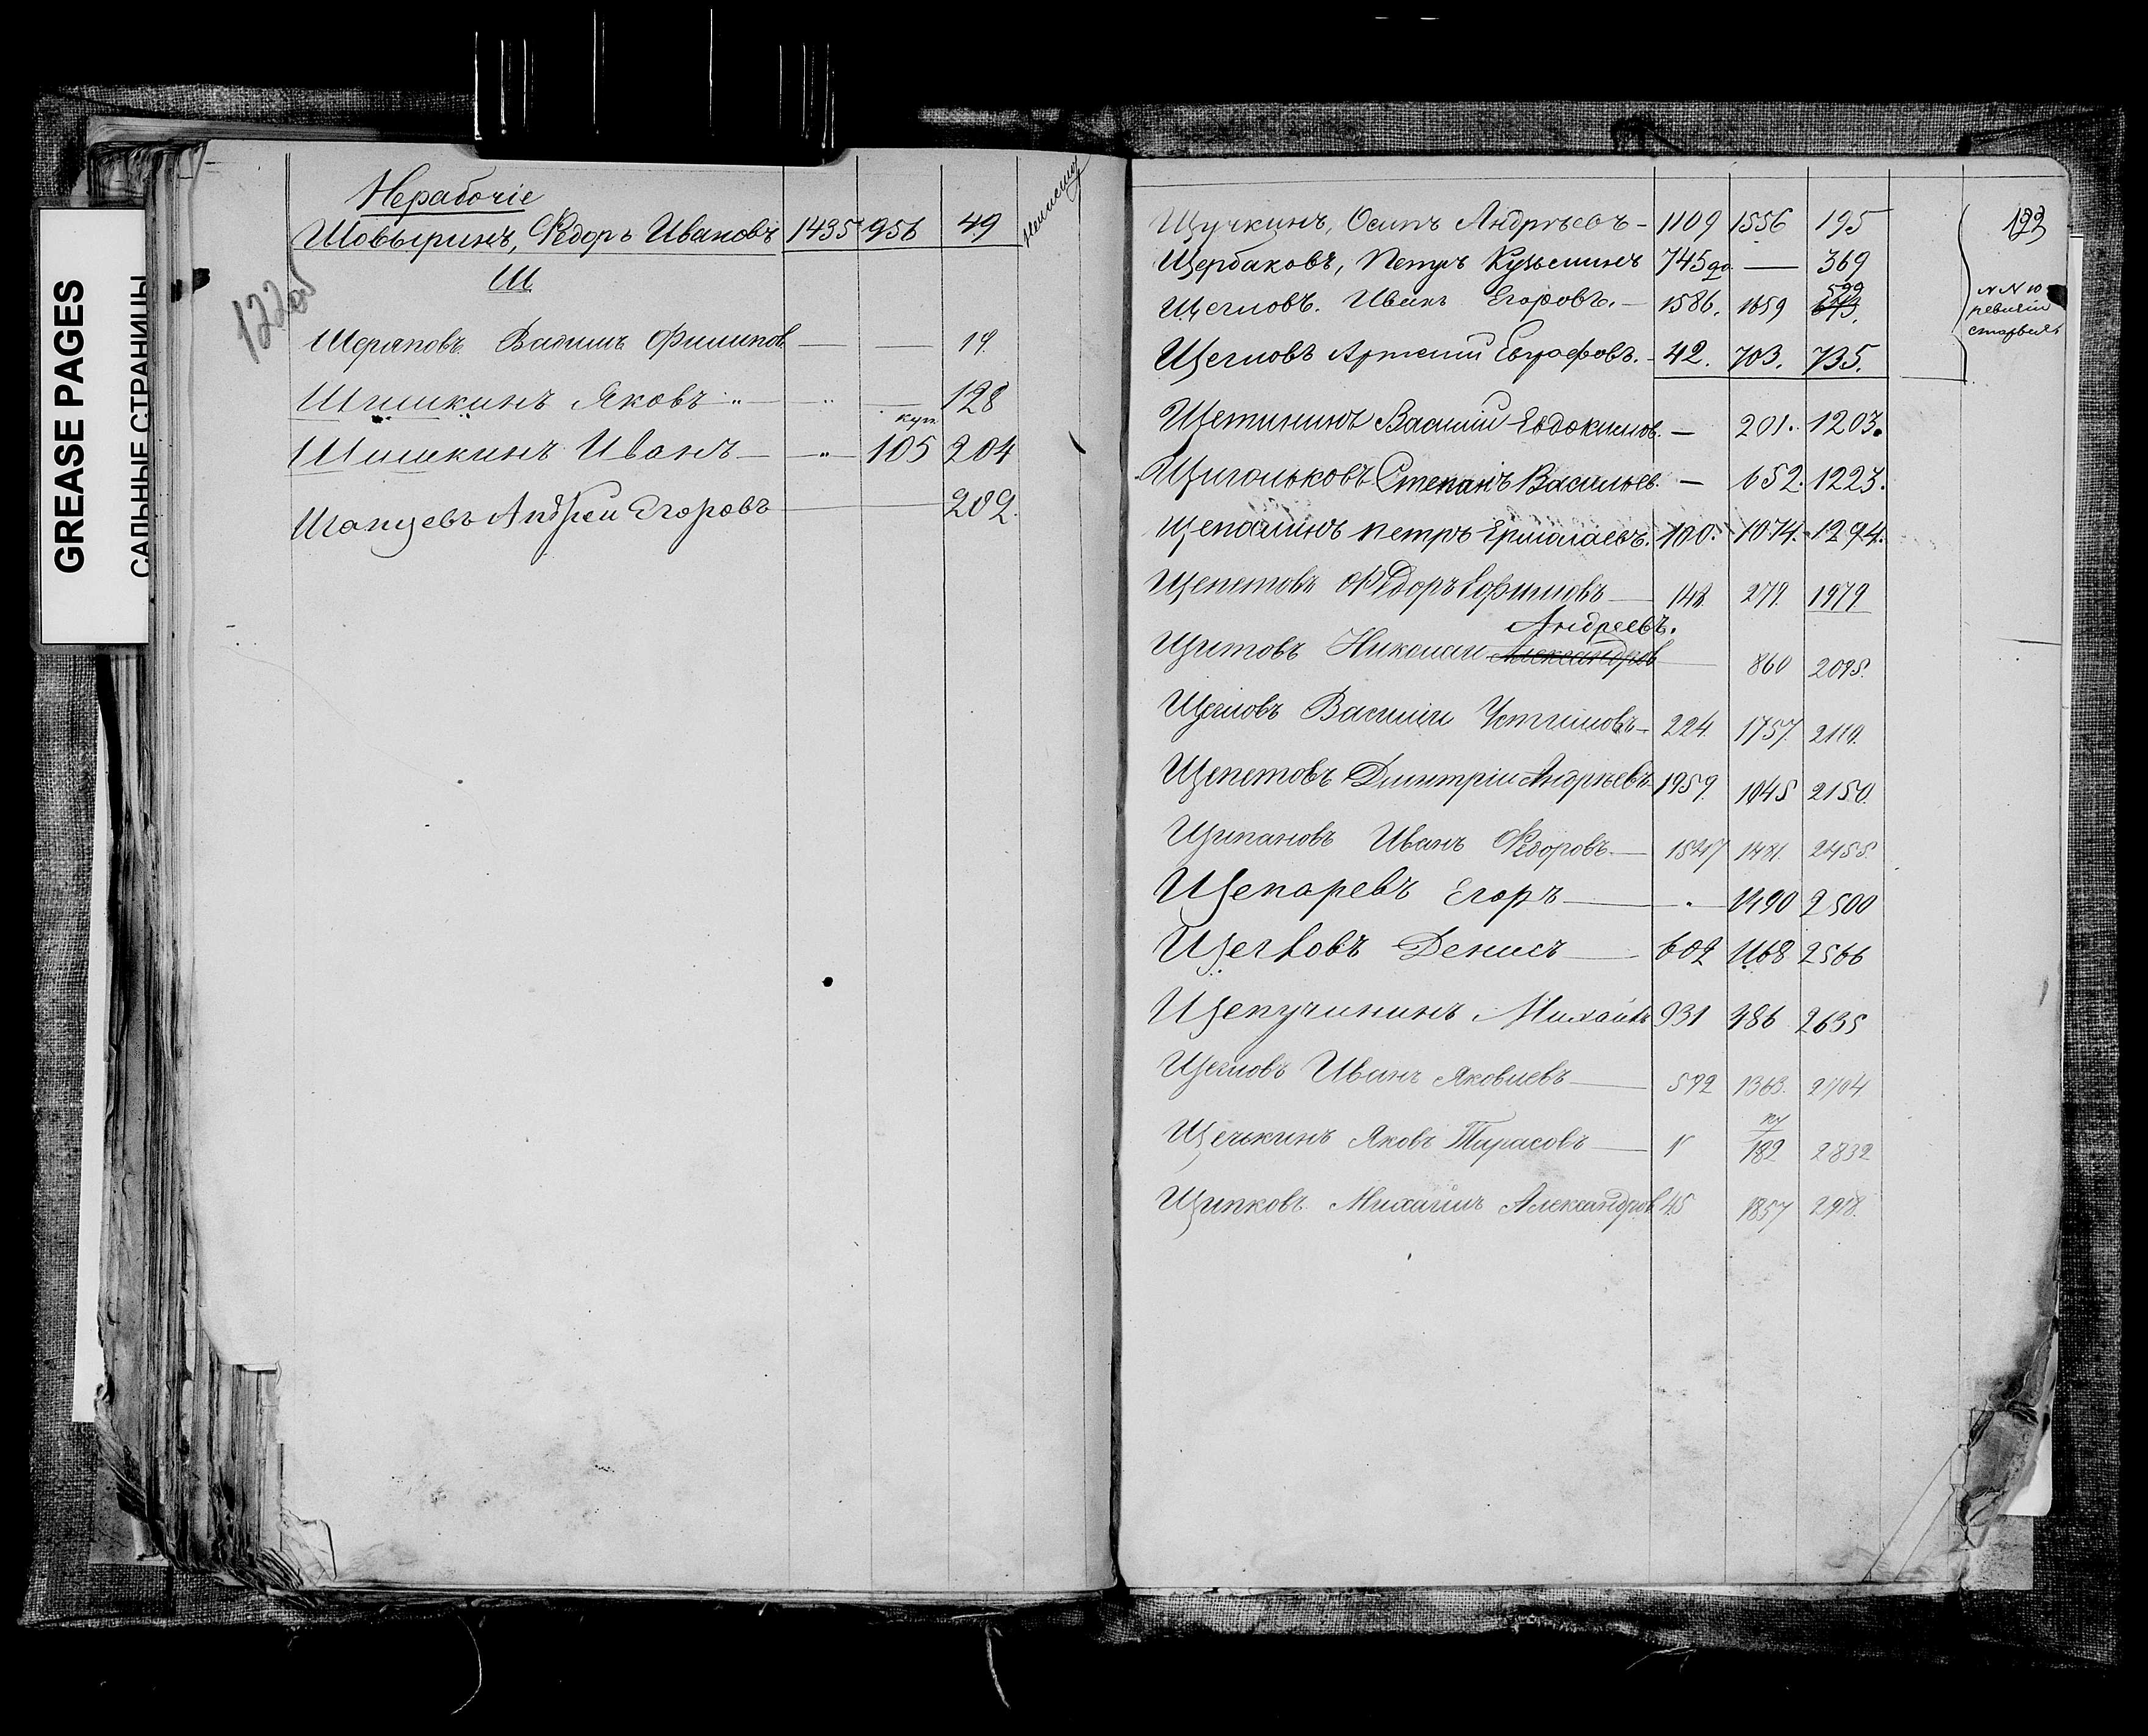 GREASE PAGES
САЛЬНЫЕ СТРАНИЦЫ
122об
Нерабочіе
Шовыринъ, Ѳедоръ Ивановъ 1435 956 49
Ш
Шеряповъ Вадимъ Филиповъ — — 19.
Шишкинъ Яковъ „ — „ — 128
куп.
Шишкинъ Иванъ — „ — 105 204
Шапцевъ Андрей Егоровъ — 202.
Щучкинъ, Осипъ Андрѣевъ - 1109 1556 195
123
Щербаковъ, Петръ Кузьминъ 745 — 369
Щегловъ. Иванъ Егоровъ. — 1586. 1659 599
№№ 10
ревизіи
Щегловъ Артемій Евграфовъ. - 42. 703. 735.
Щетининъ Василій Евдокимов. — 201. 1203.
Щигольковъ Степанъ Васильев. — 652. 1223.
Щепалинъ Петръ Ермолаевъ. 100. 1074. 1294.
Щепетовъ Ѳедоръ Ефимовъ — 148. 279. 1979
Андреевъ.
Щитовъ Николай Александров — 860 2095.
Щегловъ Василій Устимовъ - 224. 1757. 2110.
Щепетовъ Дмитрій Андреевъ 1959. 1045 2150.
Щипановъ Иванъ Ѳедоровъ. — 1547 1481. 2455.
Щепаревъ Егоръ — „ — 1490 2500
Щегловъ Денисъ — 602 1168 2566
Щепучининъ Михаилъ 931 986 2635
Щегловъ Иванъ Яковлевъ — 592 1363. 2704
Щечкинъ Яковъ Тарасовъ — 182 2832
Щипковъ Михаилъ Александров 45 1857 2918.